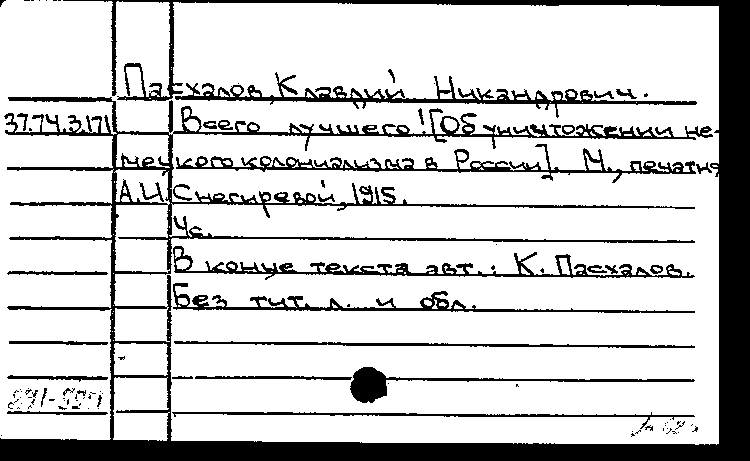 Пасхалов, Клавдий Никандрович.
37.74.3.171 Всего лучшего! [Об уничтожении не-
мецкого колониализма в России]. М., печатня
А.И. Снегиревой, 1915.
4с.
В конце текста авт.: К. Пасхалов.
Без тит. л. и обл.